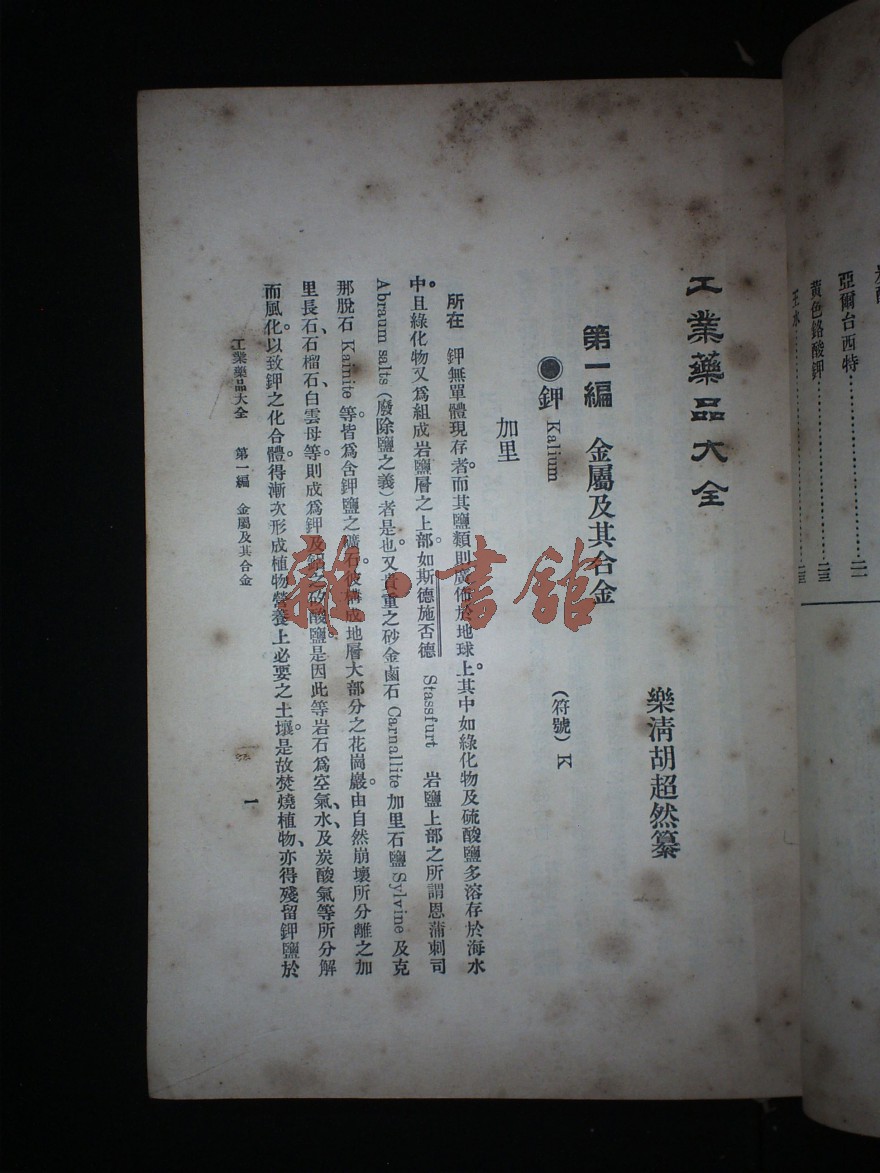 工業藥品大全
樂淸胡超然纂
第一編　金屬及其合金
◉鉀 Kalium　（符號）K
加里
所在　鉀無單體現存者。而其鹽類則廣佈於地球上。其中如綠化物及硫酸鹽多溶存於海水
中。且綠化物又爲組成岩鹽層之上部。如斯德施否德 Stassfurt 岩鹽上部之所謂恩蒲刺司
Abraum salts（廢除鹽之義）者是也。又貴重之砂金鹵石 Carnallite 加里石鹽 Sylvine 及克
那脫石 Kainite 等。皆爲含鉀鹽之礦石。彼構成地層大部分之花崗巖。由自然崩壞所分離之加
里長石、石榴石、白雲母等。則成爲鉀及鋁之矽酸鹽。是因此等岩石爲空氣、水、及炭酸氣等所分解
而風化。以致鉀之化合體。得漸次形成植物營養上必要之土壤。是故焚燒植物、亦得殘留鉀鹽於
工業藥品大全　第一編　金屬及其合金
一
亞爾台西特
二一
黃色鉻酸鉀
二三
王水
二三
雜·書館